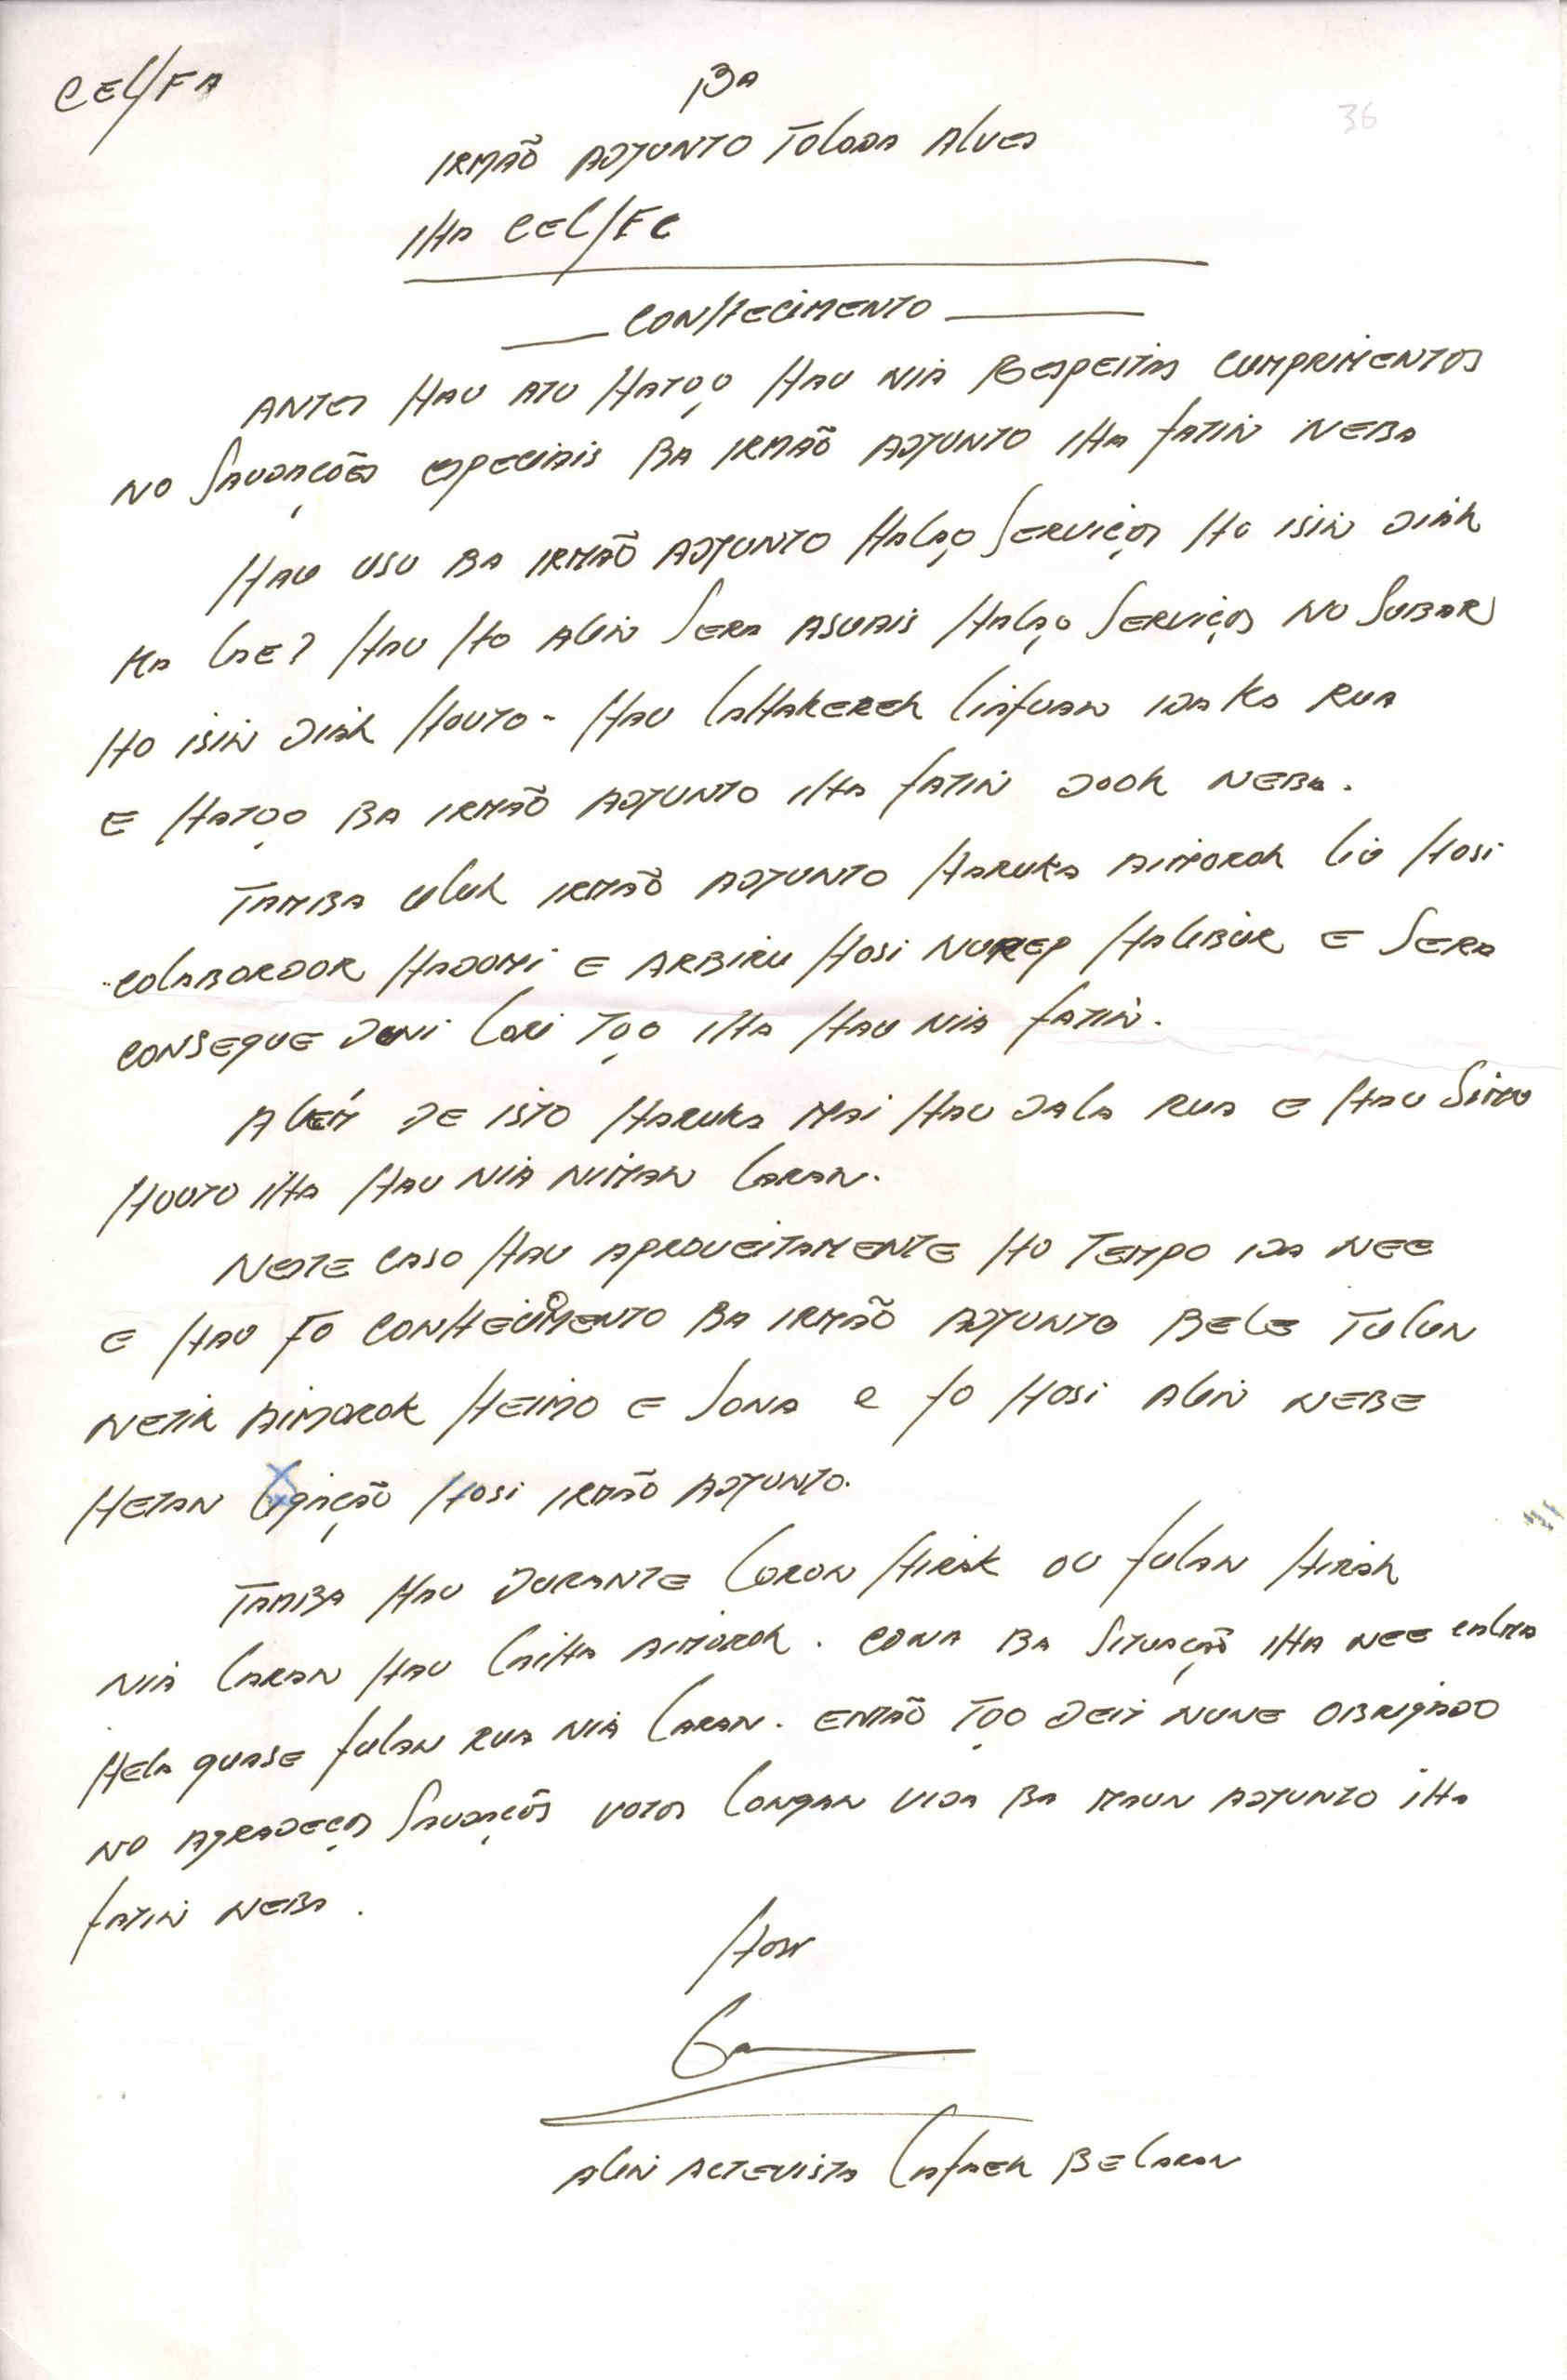 CEL/FA
Ba
36
IRMÃO ADJUNTO TOLODA ALVES
IHA CEL/FC
CONHECIMENTO
ANTES HAU ATU HATOO HAU NIA RESPEITAS CUMPRIMENTOS
NO SAUDAÇÕES ESPECIAIS BA IRMÃO ADJUNTO IHA FATIN NEBA
HAU USU BA IRMÃO ADJUNTO HALAO SERVIÇOS HO ISIN DIAK
KA LAE? HAU HO ALIN SERA ASUAIS HALAO SERVIÇOS NO SUBAR
HO ISIN DIAK HOUTO - HAU LAHAKEREK LIAFUAN IDA KA RUA
E HATOO BA IRMÃO ADJUNTO IHA FATIN DOOK NEBA.
TAMBA ULUK IRMÃO ADJUNTO HARUKA AIMOROK LIU HOSI
COLABORDOR HADOMI E ARBIRU HOSI NUREP HALIBUR E SERA
CONSEGUE DUNI LORI TOO IHA HAU NIA FATIN.
ALEM DE ISTO HARUKA MAI HAU DALA RUA E HAU SIMU
HOUTO IHA HAU NIA NIMAN LARAN.
NESTE CASO HAU APROVEITAMENTE HO TEMPO IDA NEE
E HAU FO CONHECIMENTO BA IRMÃO ADJUNTO BELE TULUN
NETIK AIMOROK HEIMO E SONA E FO HOSI ALIN NEBE
HETAN LIGAÇÃO HOSI IRMÃO ADJUNTO.
TAMBA HAU DURANTE LORON HIRAK OU FULAN HIRAK
NIA LARAN HAU LAIHA AIMOROK. CONA BA SITUAÇÃO IHA NEE CALMA
HELA QUASE FULAN RUA NIA LARAN. ENTÃO TOO DEIT NUNE OBRIGADO
NO AGRADEÇOS SAUDAÇÕS VOTOS LONGAN VIDA BA MAUN ADJUNTO IHA
FATIN NEBA.
HOW
ALIN ACTEVISTA LAFAEK BELARAN